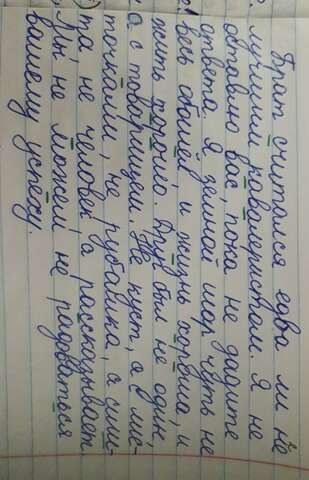 Брат считался едва ли не
лучшим ковалеристом. Я не
оставлю вас, пока не дадите
ответа. Я земной шар чуть не
весь обошёл, и жизнь хороша, и
жить хорошо. Друг был не один,
а с товарищем. Не куст, а с
точками, не рубашка, а сши-
та, не человек, а рассказывает
Мы не можем не радоваться
вашему успеху.